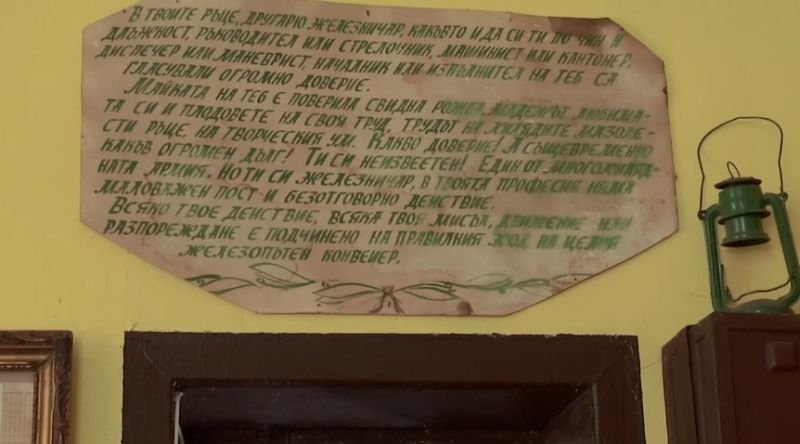 В ТВОИТЕ РЪЦЕ, ДРУГАРЮ ЖЕЛЕЗНИЧАР, КАКЪВТО И ДА СИ ТИ ПО ЧИН И
ДЛЪЖНОСТ, РЪКОВОДИТЕЛ ИЛИ СТРЕЛОЧНИК, МАШИНИСТ ИЛИ КАНТОНЕР,
ДИСПЕЧЕР ИЛИ МАНЕВРИСТ, НАЧАЛНИК ИЛИ ИЗПЪЛНИТЕЛ НА ТЕБ СА
ГЛАСУВАЛИ ОГРОМНО ДОВЕРИЕ.
МАЙКАТА НА ТЕБ Е ПОВЕРИЛА СВИДНА РОЖБА, МЛАДЕЖЪТ ЛЮБИМА-
ТА СИ И ПЛОДОВЕТЕ НА СВОЯ ТРУД, ТРУДЪТ НА ХИЛЯДИТЕ МАЗОЛЕ-
СТИ РЪЦЕ, НА ТВОРЧЕСКИЯ УМ. КАКВО ДОВЕРИЕ! А СЪЩЕВРЕМЕННО
КАКЪВ ОГРОМЕН ДЪЛГ! ТИ СИ НЕИЗВЕСТЕН! ЕДИН ОТ МНОГОХИЛЯД-
НАТА АРМИЯ. НО ТИ СИ ЖЕЛЕЗНИЧАР, В ТВОЯТА ПРОФЕСИЯ НЯМА
МАЛОВАЖЕН ПОСТ И БЕЗОТГОВОРНО ДЕЙСТВИЕ.
ВСЯКО ТВОЕ ДЕЙСТВИЕ, ВСЯКА ТВОЯ МИСЪЛ, ДВИЖЕНИЕ ИЛИ
РАЗПОРЕЖДАНЕ Е ПОДЧИНЕНО НА ПРАВИЛНИЯ ХОД НА ЦЕЛИЯ
ЖЕЛЕЗОПЪТЕН КОНВЕЙЕР.